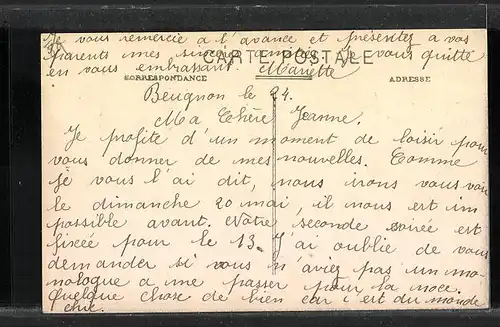 Je vous remercie a l'avance et présentez a vos
parents mes sincères amitiés. Je vous quitte
CARTE POSTALE
en vous embrassant. Mariette
CORRESPONDANCE
ADRESSE
Beugnon le 24.
Ma Chère Jeanne.
Je profite d'un moment de loisir pour
vous donner de mes nouvelles. Comme
je vous l'ai dit, nous irons vous voir
le dimanche 20 mai, il nous est im
possible avant. Notre seconde soirée est
fixée pour le 13. J'ai oublie de vous
demander si vous n'aviez pas un mo-
nologue a me passer pour la noce.
Quelque chose de bien car c'est du monde
chic.